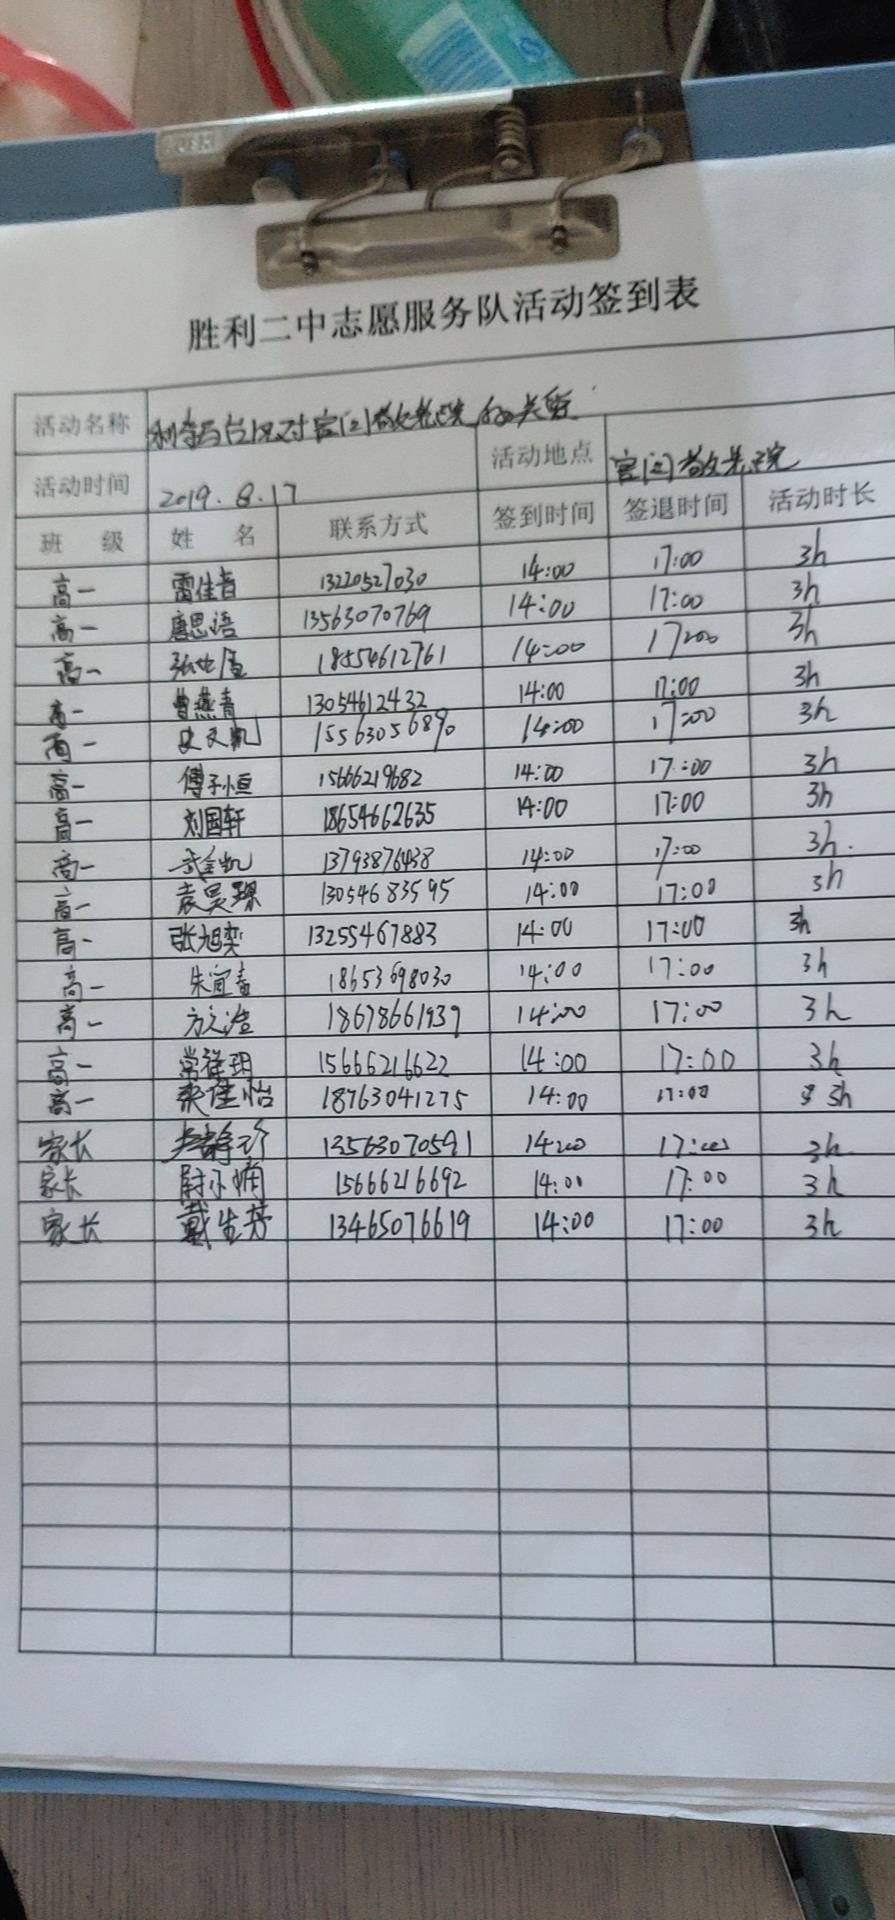 胜利二中志愿服务队活动签到表
活动名称 利奇马台风对官门敬老院的关爱
活动时间 2019.8.17 活动地点 官门敬老院
班 级 姓 名 联系方式 签到时间 签退时间 活动时长
高一 雷佳音 13220527030 14:00 17:00 3h
高一 唐思语 13563070769 14:00 17:00 3h
高一 18554612761 14:00 17:00 3h
高一 曹燕青 13054612432 14:00 17:00 3h
高一 史文凯 15563056890 14:00 17:00 3h
高一 傅子恒 15666219682 14:00 17:00 3h
高一 刘国轩 18654662635 14:00 17:00 3h
高一 13793876438 14:00 17:00 3h.
高一 袁昊琛 13054683595 14:00 17:00 3h
高一 张旭奕 13255467883 14:00 17:00 3h
高一 朱宜春 18653698030 14:00 17:00 3h
高一 18678661939 14:00 17:00 3h
高一 常徐玥 15666216622 14:00 17:00 3h
高一 佳怡 18763041275 14:00 17:00 3h
家长 13563070591 14:00 17:00 3h
家长 尉小娟 15666216692 14:00 17:00 3h
家长 戴生芳 13465076619 14:00 17:00 3h